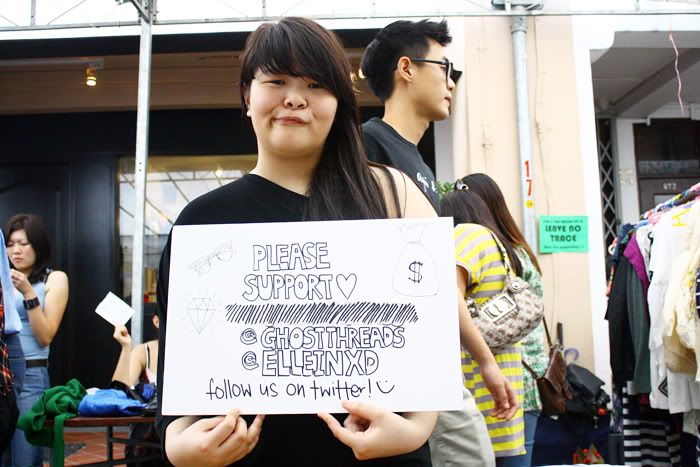 PLEASE
SUPPORT
@GHOSTTHREADS
@ELLEINXD
follow us on twitter!
$
LEAVE NO
TRACE
672
17